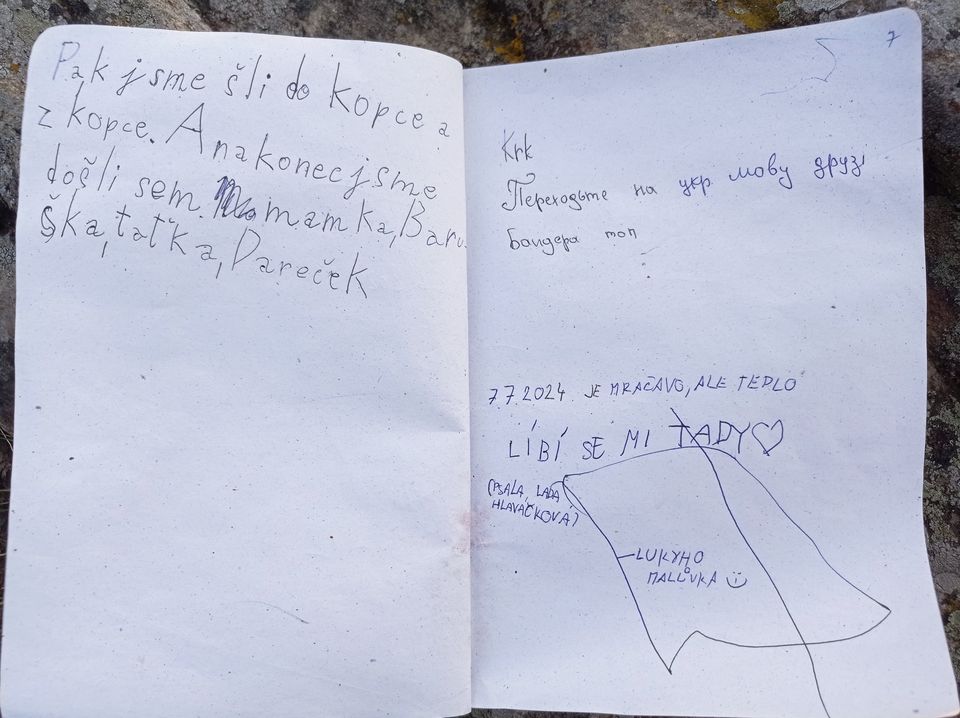 Pak jsme šli do kopce a
z kopce. A nakonec jsme
došli sem. mamka, Baru
ška, taťka, Dareček
7
Krk
Переходьте на укр мову друзі
Бандера топ
7.7.2024 JE MRAČAVO, ALE TEPLO
LÍBÍ SE MI TADY♡
(PSALA LADA
HLAVÁČKOVÁ)
LUKYHO
MALŮVKA